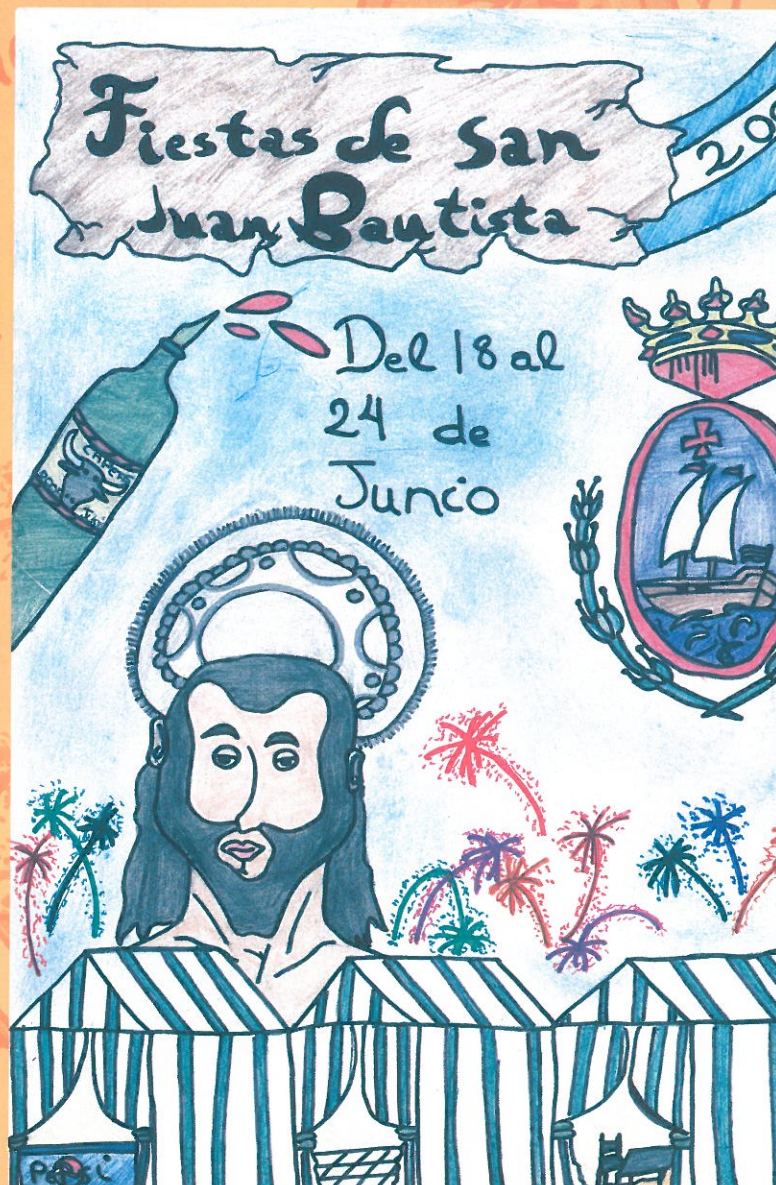 Fiestas de San
Juan Bautista
Del 18 al
24 de
Junio
Pepsi